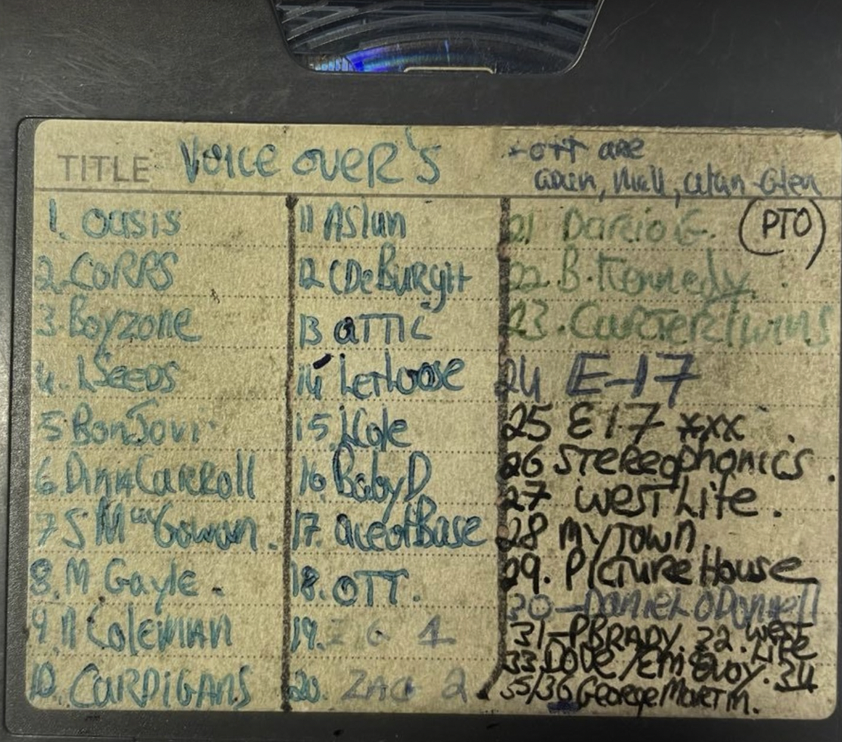 TITLE VOICE OVER'S
- OTT are
Niall, Alan - Glen
(PTO)
1. Oasis
2. CORRS
3. Boyzone
4. LSeeds
5 BonJovi
6. Dina Carroll
7 S MacGowan.
8. M Gayle.
9. Coleman
10. CARDIGANS
11 Aslan
12 CDeBurgh
13 aTTIC
14 LetLoose
15. NCole
16. BabyD
17. aceofBase
18. OTT.
19. 1
20. 2
21 Dario G.
22. B. Kennedy
23. CARTER TWINS
24 E-17
25 E17 xxx.
26 STEREOPHONICS.
27 WEST Life.
28 MYTOWN
29. PICTURE House
30 - Daniel O'Donnell
31 - PBRADY 32. WEST LIFE
33 DOVE / EM EVOY. 34
35/36 George Martin.